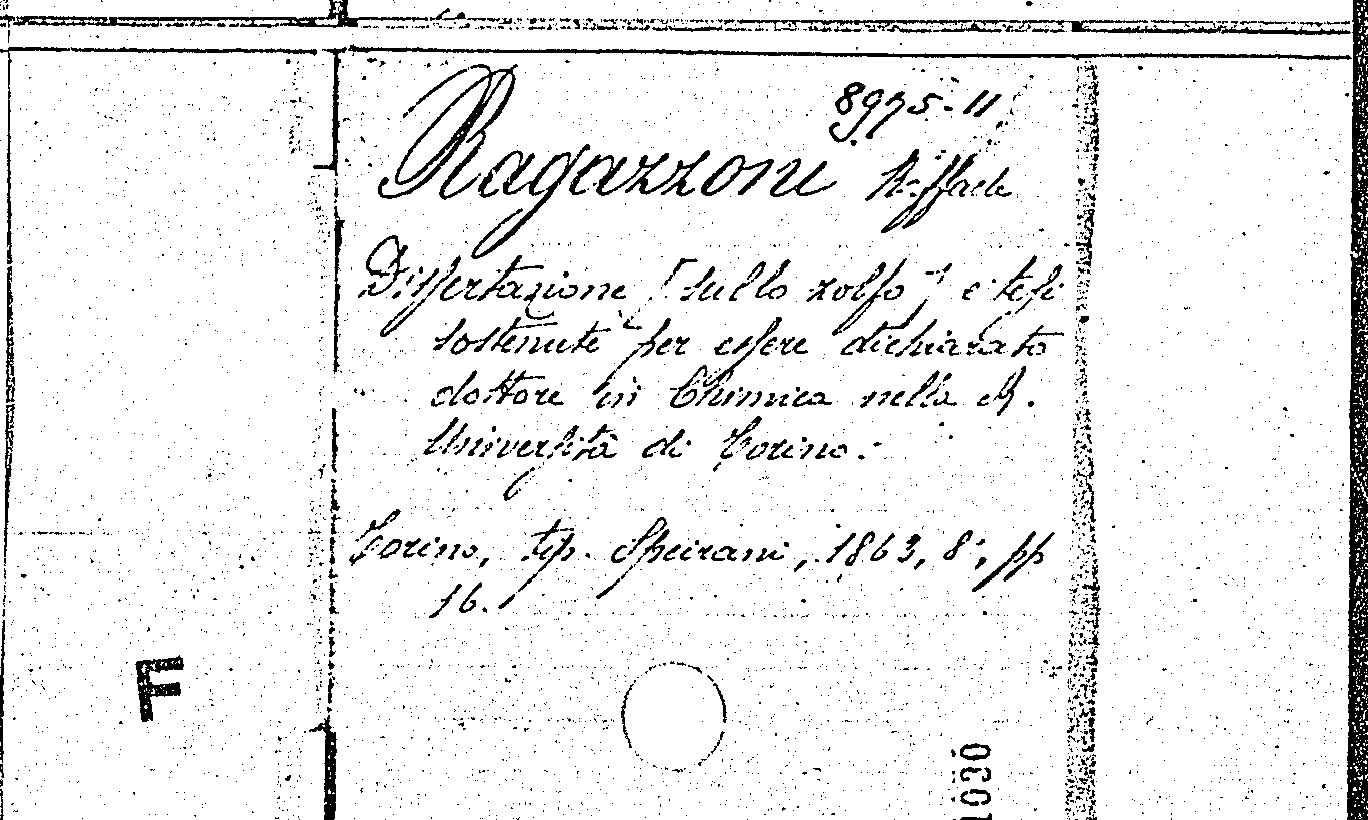 8975-11
Ragazzoni Raffaele
Dissertazione [sullo zolfo] e tesi
sostenute per essere dichiarato
dottore in Chimica nella R.
Università di Torino.
Torino, tip. Speirani, 1863, 8°, pp
16.
F
1030